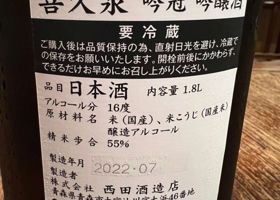 喜久泉 吟冠 吟醸酒
要冷蔵
ご購入後は品質保持の為、直射日光を避け、冷蔵で
の保存をお願いいたします。開栓前後にかかわらず、
できるだけお早めにお召し上がりください。
品目 日本酒 内容量 1.8L
アルコール分 16度
原材料名 米(国産)、米こうじ(国産米)
醸造アルコール
精米歩合 55%
製造年月 2022.07
製造者
株式会社 西田酒造店
青森県青森市大字油川字大浜46番地